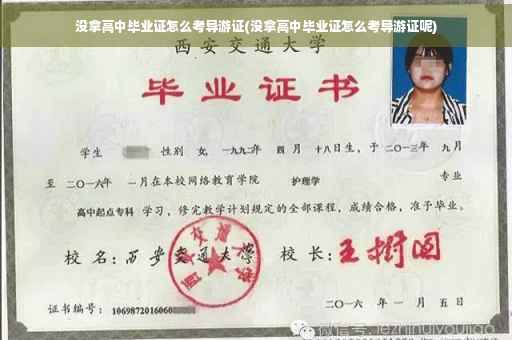 没拿高中毕业证怎么考导游证(没拿高中毕业证怎么考导游证呢)
西安交通大学
毕业证书
学生 性别 女, 一九九二年 四月 十八日生, 于二〇一三年 九月
至 二〇一六年 一月在本校网络教育学院 护理学 专业
高中起点专科 学习, 修完教学计划规定的全部课程, 成绩合格, 准予毕业。
校名: 西安交通大学 校长: 王树国
西安交通大学
证书编号: 1069872016060
二〇一六年 一月 五日
微信号: jezhinuiyoujiao